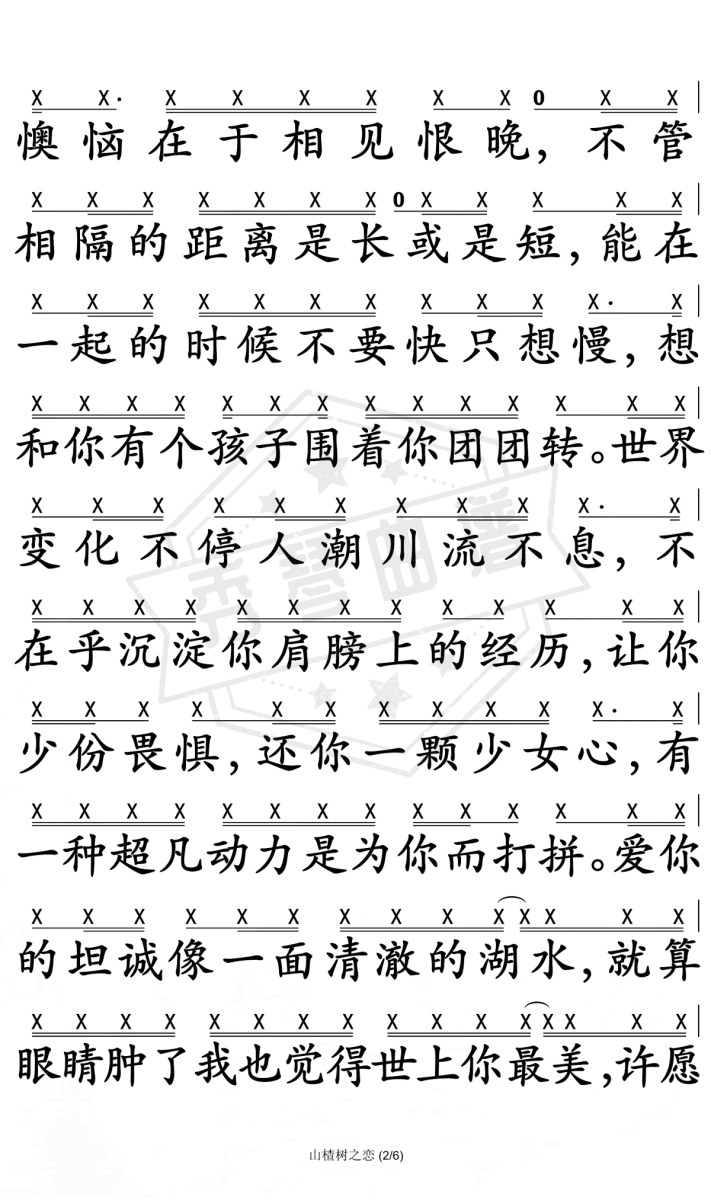 X X· X X X X X X 0 X X
懊恼在于相见恨晚,不管
X X X X X X X 0 X X X X X
相隔的距离是长或是短,能在
X X X X X X X X X X X· X
一起的时候不要快只想慢,想
X X X X X X X X X X X X X X
和你有个孩子围着你团团转。世界
X X X X X X X X X X· X
变化不停人潮川流不息,不
X X X X X X X X X X X X X
在乎沉淀你肩膀上的经历,让你
X X X X X X X X X X X· X
少份畏惧,还你一颗少女心,有
X X X X X X X X X X X X X X
一种超凡动力是为你而打拼。爱你
X X X X X X X X X X X X X X
的坦诚像一面清澈的湖水,就算
X X X X X X X X X X X X X X X X
眼睛肿了我也觉得世上你最美,许愿
秀琴曲谱
山楂树之恋 (2/6)